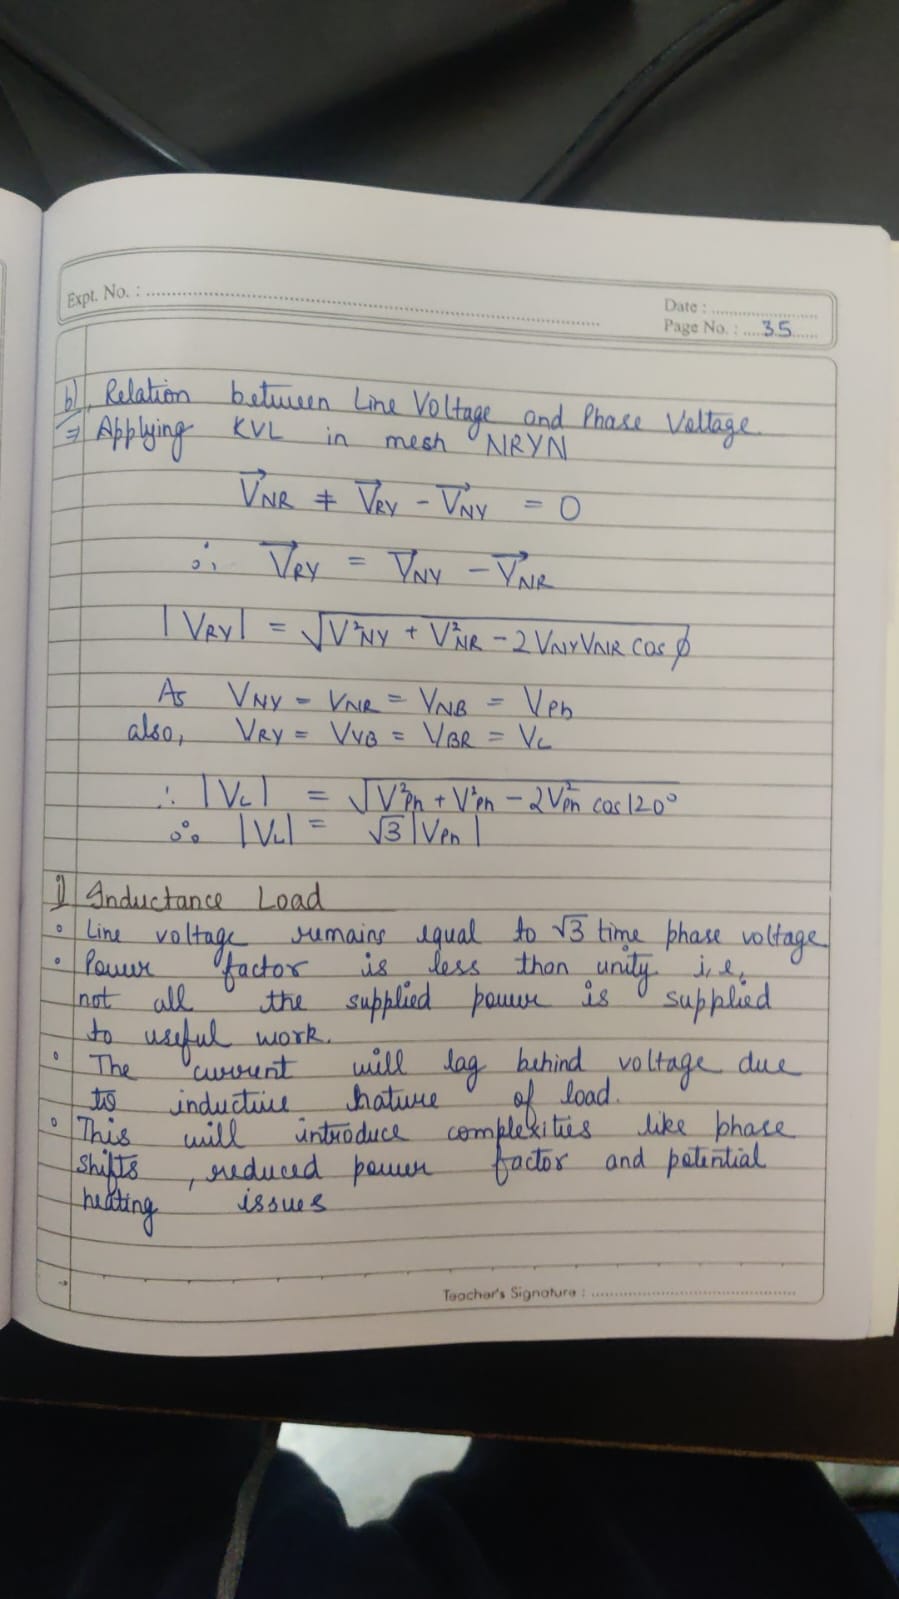 Expt. No. :
Date :
Page No. : 35
b), Relation between Line Voltage and Phase Voltage
⇒ Applying KVL in mesh NRYN
V⃗NR + V⃗RY - V⃗NY = 0
∴ V⃗RY = V⃗NY - V⃗NR
|VRY| = √V²NY + V²NR - 2VNYVNR cos ϕ
As VNY = VNR = VNB = Vph
also, VRY = VYB = VBR = VL
∴ |VL| = √V²ph + V²ph - 2V²ph cos 120°
∴ |VL| = √3 |Vph|
i) Inductance Load
• Line voltage remains equal to √3 time phase voltage
• Power factor is less than unity i,e,
not all the supplied power is supplied
to useful work.
• The current will lag behind voltage due
to inductive nature of load.
• This will introduce complexities like phase
shifts, reduced power factor and potential
heating issues
Teacher's Signature :